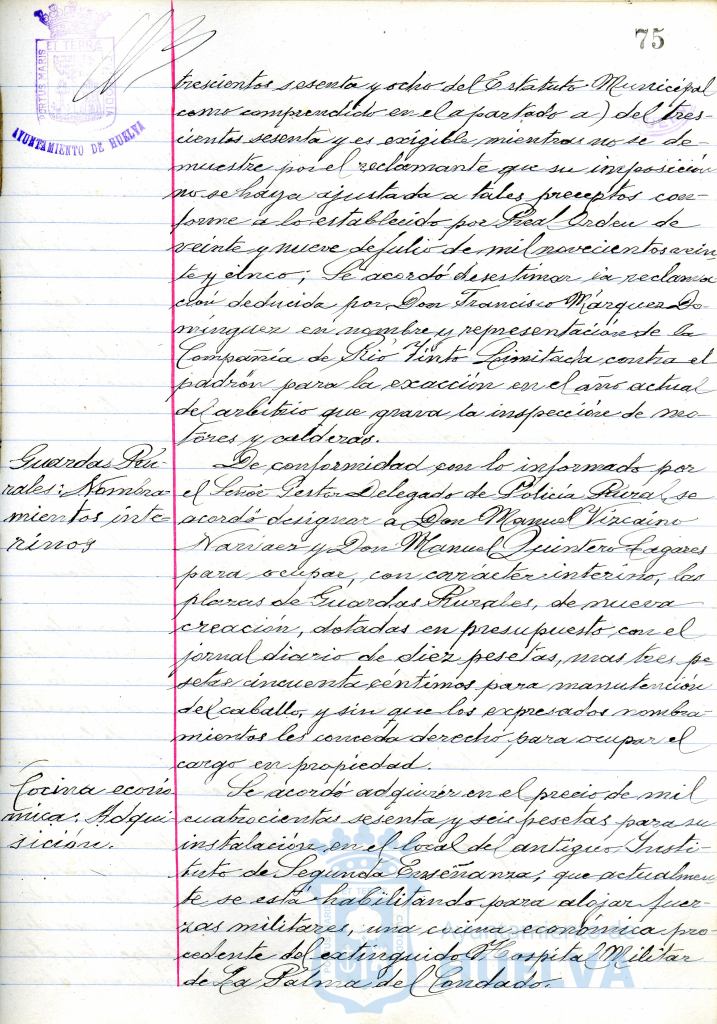 75
PORTUS MARIS ET TERRAE CUSTODIA
AYUNTAMIENTO DE HUELVA
trescientos sesenta y ocho del Estatuto Municipal
como comprendido en el apartado a) del tres-
cientos sesenta y es exigible, mientras no se de-
muestre por el reclamante que su imposición
no se haya ajustada a tales preceptos con-
forme a lo establecido por Real Orden de
veinte y nueve de julio de mil novecientos vein
te y cinco; Se acordó desestimar la reclama
ción deducida por Don Francisco Márquez Do-
mínguez en nombre y representación de la
Compañía de Rio Tinto Limitada contra el
padrón para la exacción en el año actual
del arbitrio que grava la inspección de mo-
tores y calderas.
Guardas Ru-
rales: Nombra-
mientos inte-
rinos
De conformidad con lo informado por
el Señor Gestor Delegado de Policía Rural, se
acordó designar a Don Manuel Vizcaino
Narvaez y Don Manuel Quintero Cagares
para ocupar, con carácter interino, las
plazas de Guardas Rurales, de nueva
creación, dotadas en presupuesto con el
jornal diario de diez pesetas, mas tres pe
setas cincuenta céntimos para manutención
del caballo, y sin que los expresados nombra-
mientos les conceda derecho para ocupar el
cargo en propiedad.
Cocina econó-
mica: Adqui-
sición.
Se acordó adquirir en el precio de mil
cuatrocientas sesenta y seis pesetas para su
instalación en el local del antiguo Insti-
tuto de Segunda Enseñanza, que actualmen-
te se está habilitando para alojar fuer-
zas militares, una cocina económica pro-
cedente del extinguido Hospital Militar
de La Palma del Condado.
Ayuntamiento de
HUELVA